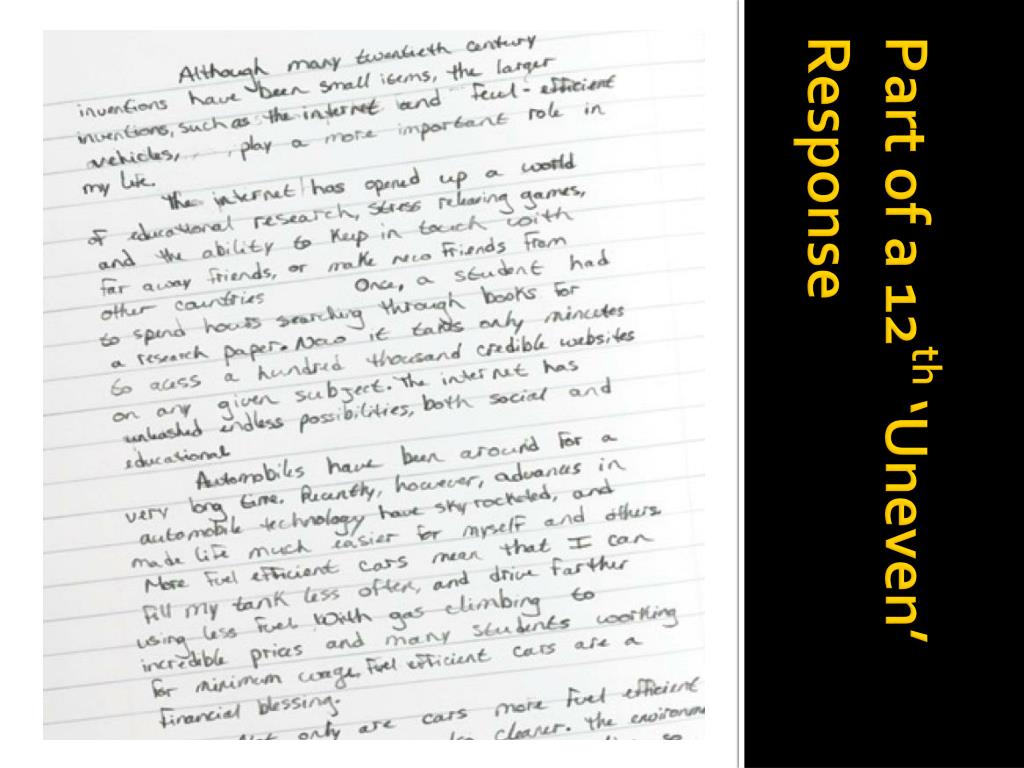 Part of a 12th ‘Uneven’
Response
Although many twentieth century
inventions have been small items, the larger
inventions, such as the internet and feul-efficient
vehicles, play a more important role in
my life.
The internet has opened up a world
of educational research, stress releiving games,
and the ability to keep in touch with
far away friends, or make new friends from
other countries Once, a student had
to spend hours searching through books for
a research paper. Now it takes only minutes
to acess a hundred thousand credible websites
on any given subject. The internet has
unleashed endless possibilities, both social and
educational
Automobiles have been around for a
very long time. Recently, however, advances in
automobile technology have skyrocketed, and
made life much easier for myself and others
More fuel efficient cars mean that I can
fill my tank less often, and drive farther
using less fuel With gas climbing to
incredible prices and many students working
for minimum wage, fuel efficient cars are a
financial blessing.
Not only are cars more fuel efficient
cleaner. The environm
so